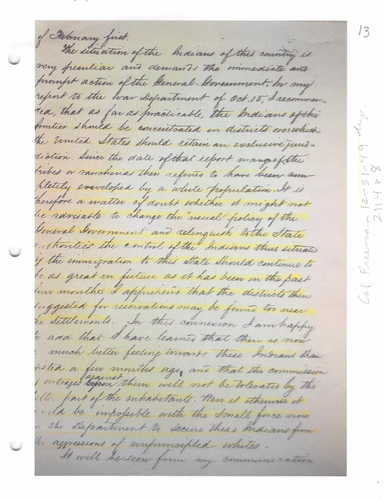 13
of February first.
The situation of the Indians of this country is
very peculiar and demands the immediate and
prompt action of the General Government. In my
report to the War Department of Oct. 15, I recommen-
ded, that as far as practicable, the Indians of this
should be concentrated in districts over which
the United States should retain an exclusive juris-
diction. Since the date of that report many of the
tribes or rancherias then referred to have been com-
pletely enveloped by a white population. It is
therefore a matter of doubt whether it might not
be advisable to change the "usual" policy of the
General Government and relinquish to the State
authorities the control of the Indians thus situated
if the immigration to this State should continue to
be as great in future as it has been in the past
few months I apprehend that the districts then
suggested for reservations may be found too near
the settlements. In this connexion I am happy
to add that I have learned that there is now
a much better feeling towards these Indians than
existed a few months ago, and that the commission
of outrages against upon them will not be tolerated by the
part of the inhabitants. Were it otherwise it
would be impossible with the small force now
in the Department to secure these Indians from
the aggressions of unprincipled whites.—
It will be seen from my communication